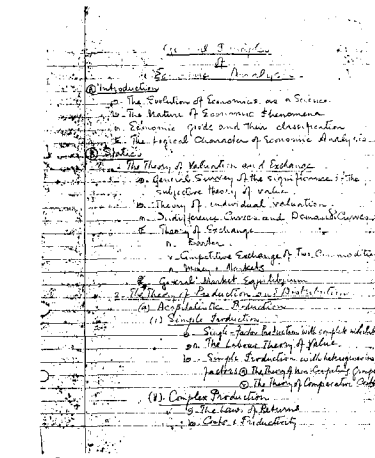 of
Economic Analysis
Introduction
The Evolution of Economics as a Science
The Nature of Economic Phenomena
Economic goods and their classification
The Logical Character of Economic Analysis
Statics
1. The Theory of Valuation and Exchange
General Survey of the significance of the
subjective theory of value
Theory of individual valuation
Indifference Curves and Demand Curves
Theory of Exchange
Barter
Competitive Exchange of Two Commodities
Money & Markets
General Market Equilibrium
2. The Theory of Production and Distribution
(a) Acapitalistic Production
(i) Simple Production
Single Factor Production with complete
The Labour Theory of Value
Simple Production with heterogeneous
factors The Theory of Non-Competing Groups
The Theory of Comparative Costs
(ii) Complex Production
The Laws of Returns
Costs & Productivity